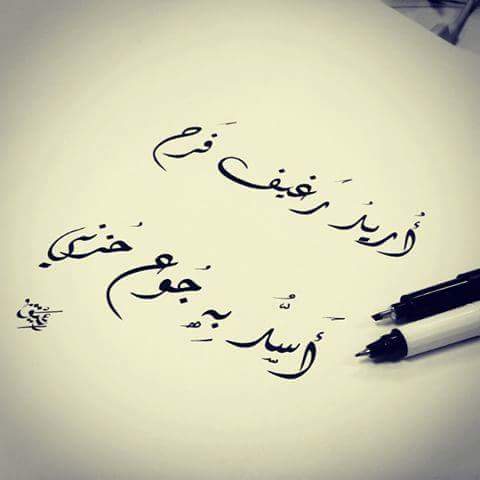 أُريدُ رَغيف فَرح
أَسُّد بِهِ جُوع حُزني